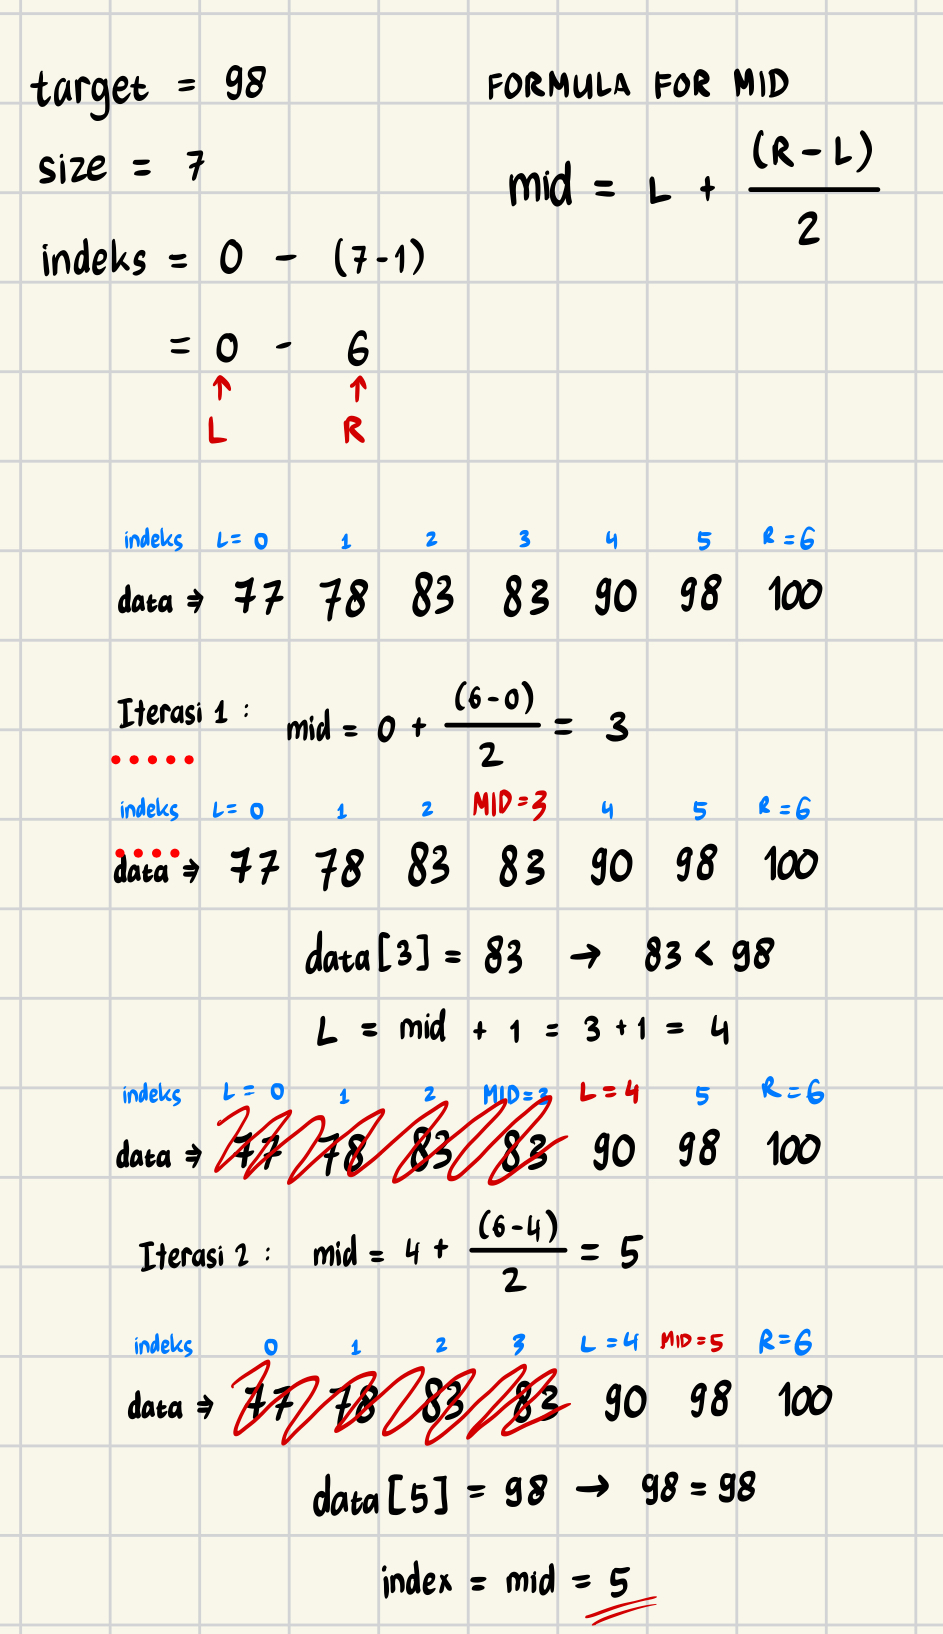 target = 98
FORMULA FOR MID
size = 7
mid = L + (R-L)/2
indeks = 0 - (7-1)
= 0 - 6
↑ ↑
L R
indeks L= 0 1 2 3 4 5 R=6
data ⇒ 77 78 83 83 90 98 100
Iterasi 1 : mid = 0 + (6-0)/2 = 3
indeks L= 0 1 2 MID=3 4 5 R=6
data ⇒ 77 78 83 83 90 98 100
data[3] = 83 → 83 < 98
L = mid + 1 = 3+1 = 4
indeks L= 0 1 2 MID=3 L=4 5 R=6
data ⇒ 77 78 83 83 90 98 100
Iterasi 2 : mid = 4 + (6-4)/2 = 5
indeks 0 1 2 3 L=4 MID=5 R=6
data ⇒ 77 78 83 83 90 98 100
data[5] = 98 → 98 = 98
index = mid = 5